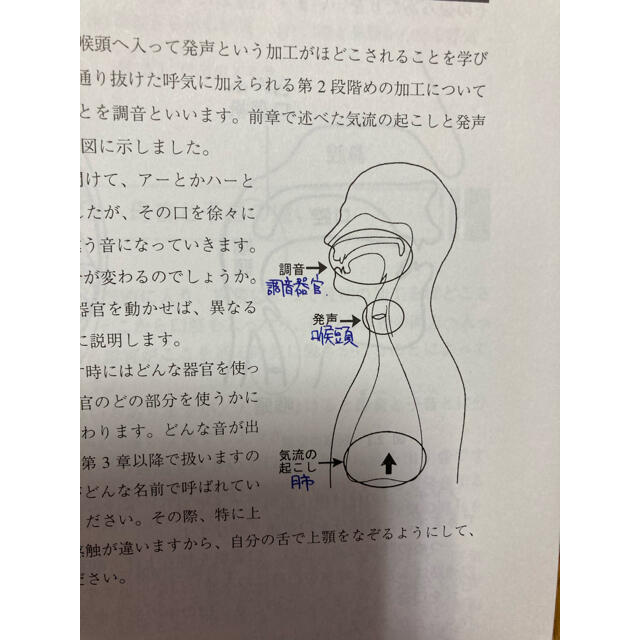 喉頭へ入って発声という加工がほどこされることを学び
通り抜けた呼気に加えられる第2段階めの加工について
とを調音といいます。前章で述べた気流の起こしと発声
図に示しました。
開けて、アーとかハーと
したが、その口を徐々に
う音になっていきます。
が変わるのでしょうか。
器官を動かせば、異なる
に説明します。
時にはどんな器官を使っ
官のどの部分を使うかに
わります。どんな音が出
第3章以降で扱いますの
どんな名前で呼ばれてい
ください。その際、特に上
感触が違いますから、自分の舌で上顎をなぞるようにして、
ださい。
調音
調音器官
発声
喉頭
気流の
起こし
肺